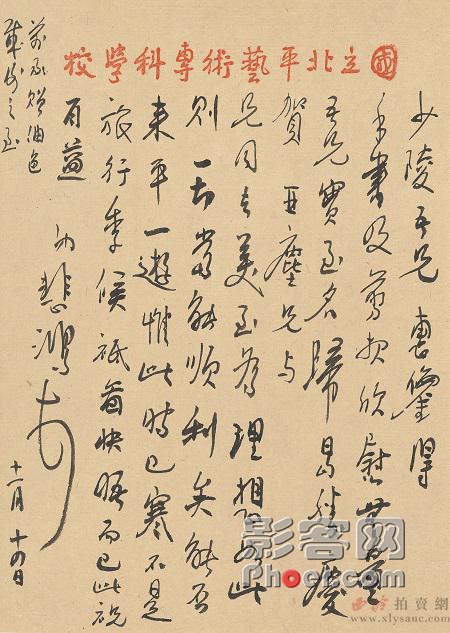 國立北平藝術專科學校
少陵吾兄惠鑒得
手書及剪報欣慰無量
吾兄實至名歸曷勝慶
賀 塵兄与
兄同美至為理想如此
則一切當能順利矣能否
來平一遊惟此時已寒不是
旅行季候祇圖快晤而已此祝
百益 弟悲鴻
十一月十四日
前承贈油色
感謝之至
影客网
Phoer.com
西泠拍賣網
www.xlysauc.com